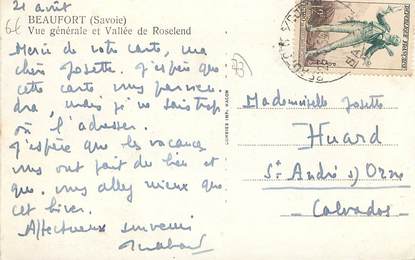 21 août
BEAUFORT (Savoie)
Vue générale et Vallée de Roselend
Merci de votre carte, ma
chère Josette. J'espère que
cette carte vous parvien
dra, mais je ne sais trop
où l'adresser.
J'espère que les vacances
vous ont fait du bien et
que vous allez mieux que
cet hiver.
Affectueux souvenir
73
Mademoiselle Josette
Huard
St André s/ Orne
Calvados